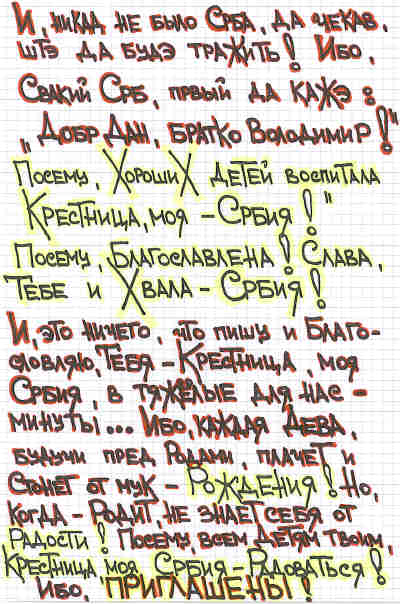 И, никад не было Срба, да чекав,
штэ да будэ тражить! Ибо,
Свакий Срб, првый да кажэ:
„Добр Дан, братко Володимир!"
Посему, хороших детей воспитала
Крестница, моя - Србия!"
Посему, Благославлена! Слава,
Тебе и Хвала - Србия!
И, это ничего, что пишу и Благо-
словляю, Тебя - Крестница, моя
Србия, в тяжёлые для нас -
минуты... Ибо, каждая Дева,
будучи пред Родами, плачет и
стонет от мук - Рождения! Но,
когда - Родит, не знает себя от
Радости! Посему, всем Детям твоим,
Крестница моя Србия - Радоваться!
Ибо, "ПРИГЛАШЕНЫ!